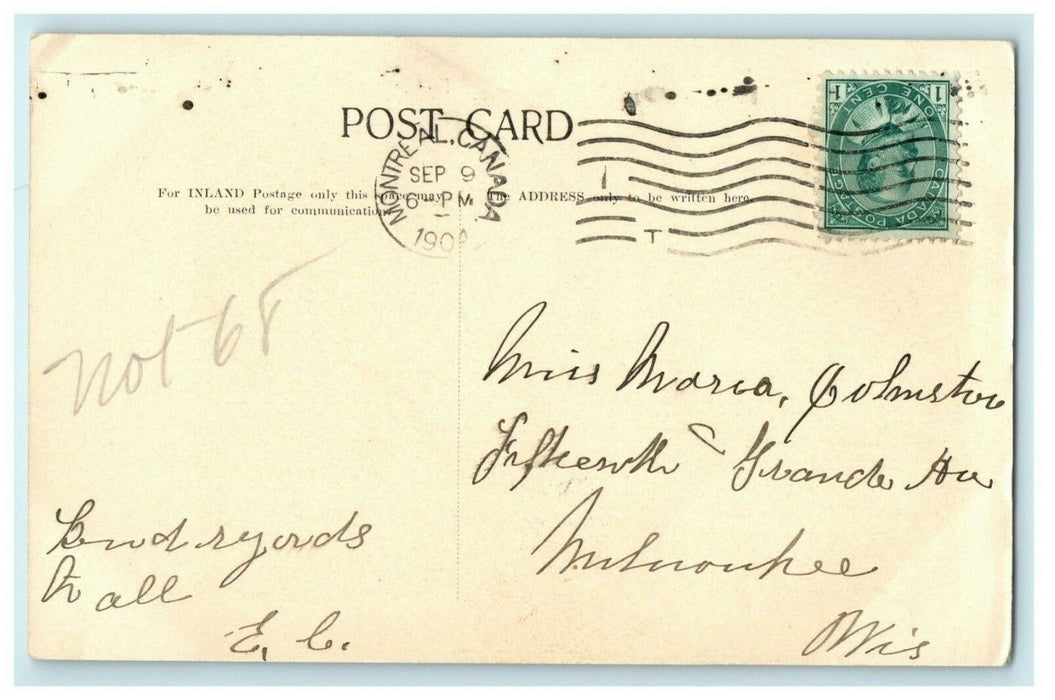 POST CARD
MONTREAL, CANADA
SEP 9
6 - PM
190
T
1 1
ONE CENT
CANADA POSTAGE
For INLAND Postage only this space may
be used for communication
The ADDRESS only to be written here.
not 68
Miss Maria,
Grande Av
Milwaukee
Wis
Kind regards
to all
E. C.